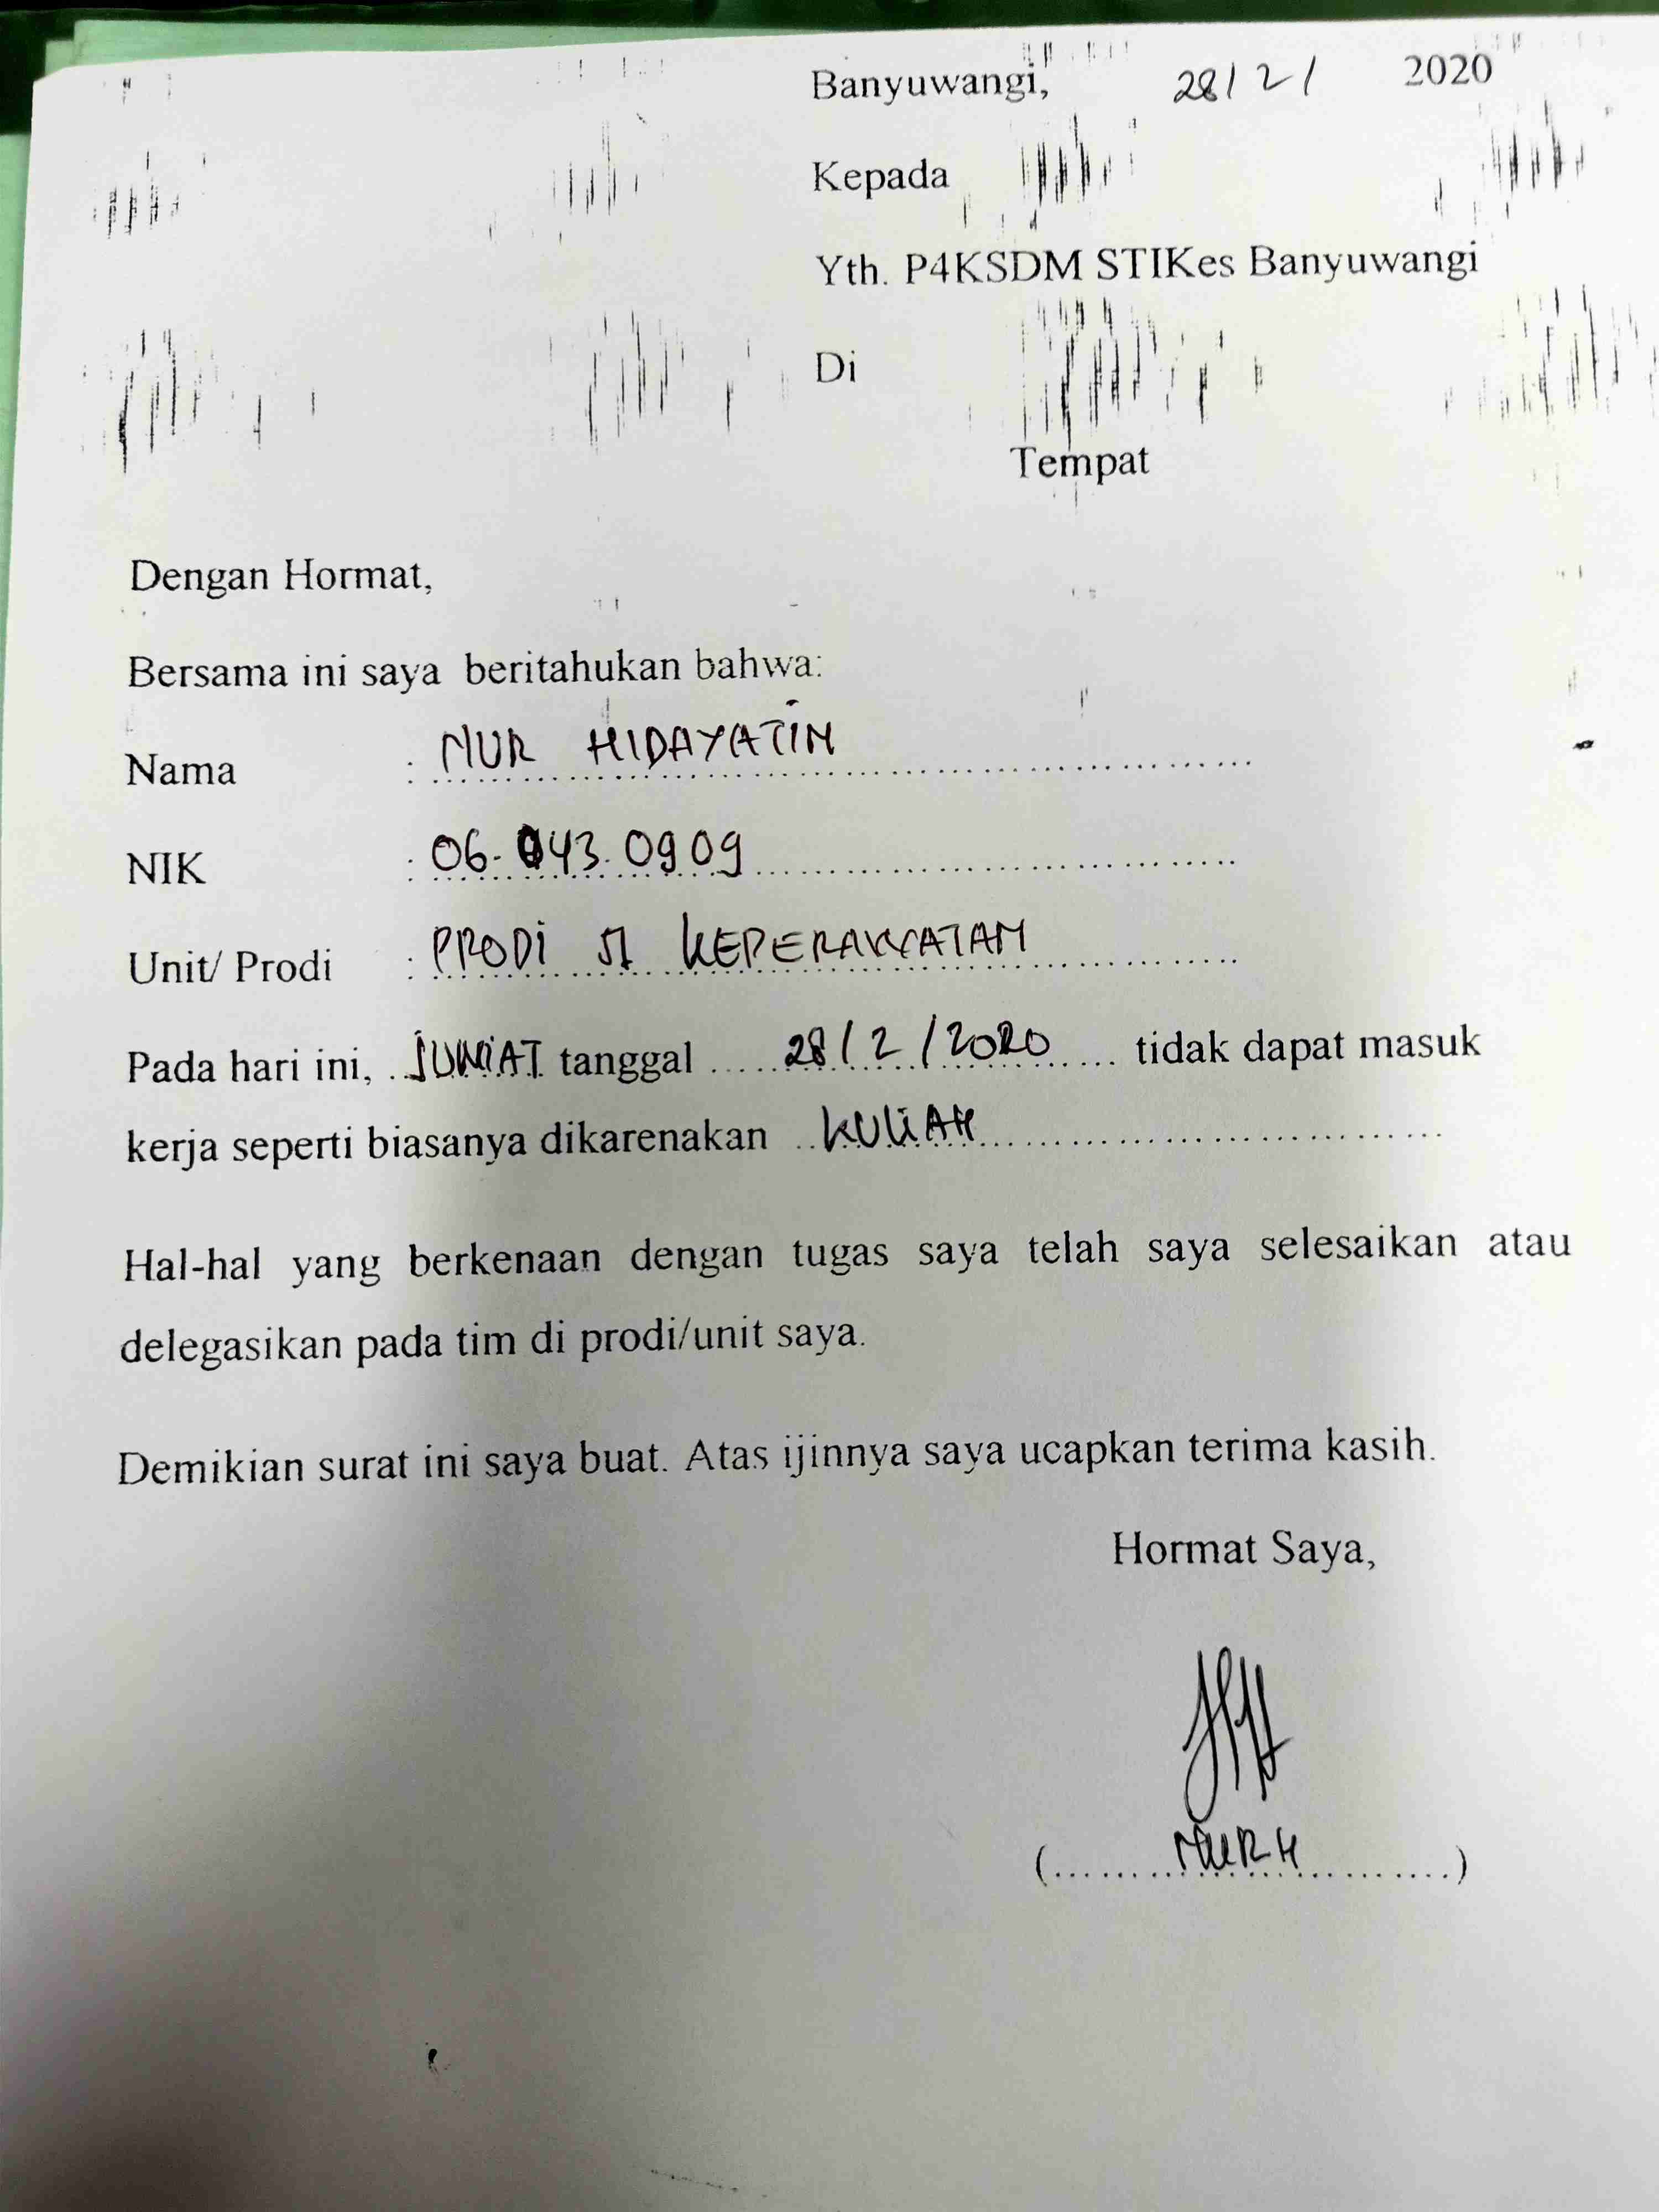 Banyuwangi, 28/2/ 2020
Kepada
Yth. P4KSDM STIKes Banyuwangi
Di
Tempat
Dengan Hormat,
Bersama ini saya beritahukan bahwa:
Nama : NUR HIDAYATIN
NIK : 06.043.0909
Unit/ Prodi : PRODI S1 KEPERAWATAN
Pada hari ini, JUM'AT tanggal 28/2/2020 tidak dapat masuk
kerja seperti biasanya dikarenakan KULIAH
Hal-hal yang berkenaan dengan tugas saya telah saya selesaikan atau
delegasikan pada tim di prodi/unit saya.
Demikian surat ini saya buat. Atas ijinnya saya ucapkan terima kasih.
Hormat Saya,
(NUR H)